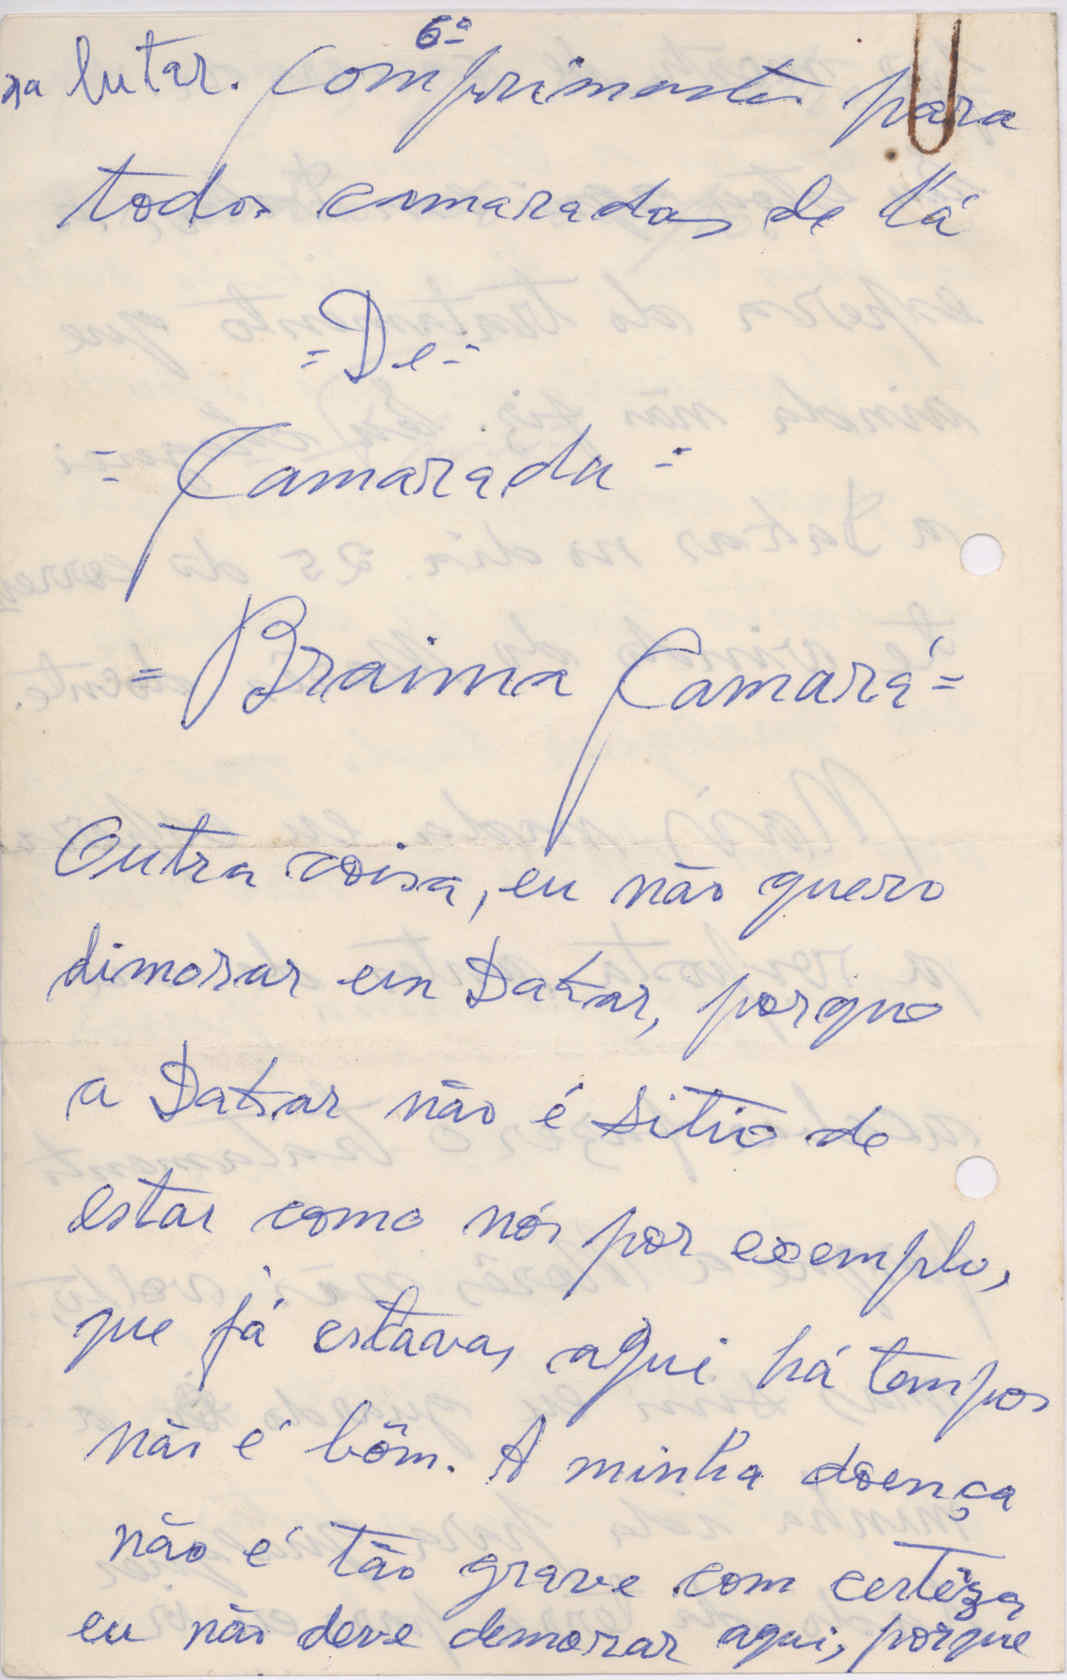 6ª
ra lutar. Comprimentos para
todos camaradas de lá
=De=
= Camarada =
= Braima Camará =
Outra coisa, eu não quero
dimorar em Dakar, porque
a Dakar não é sitio de
estar como nós por exemplo,
que já estavas aqui há tempos
não é bôm. A minha doença
não é tão grave com certêza
eu não deve demorar aqui, porque